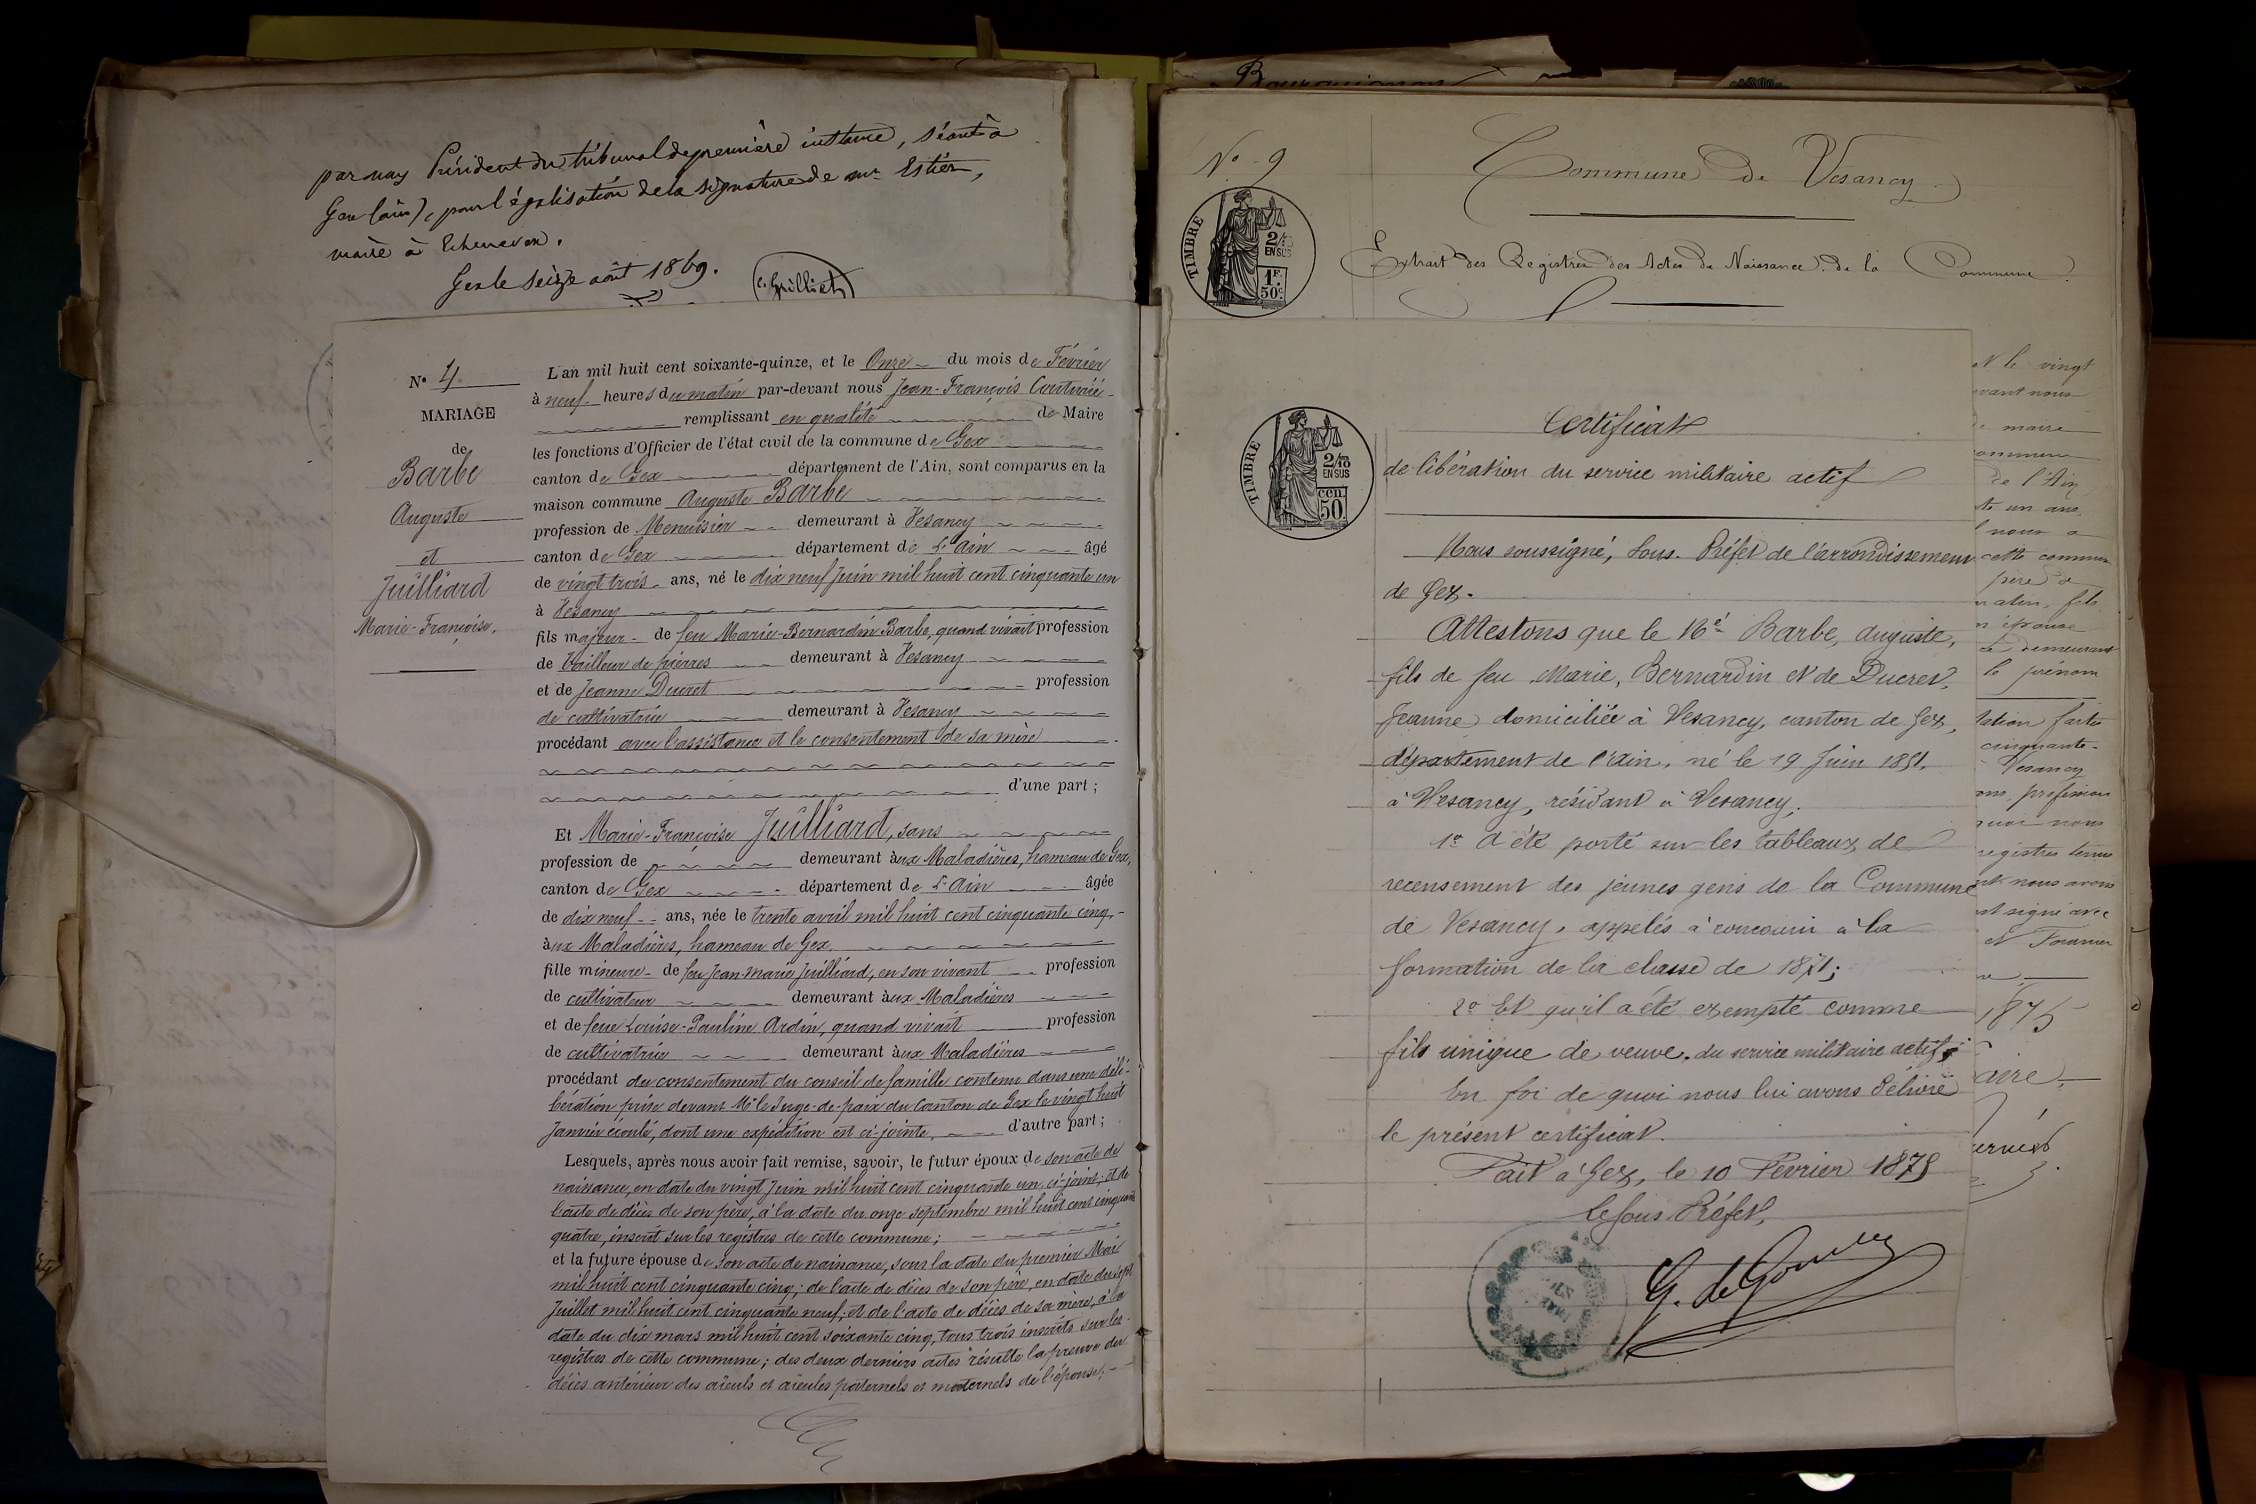 par nous Président du tribunal de première instance, séant à
Gex (ain), pour légalisation de la signature de mr Estier,
maire à Echenevex.
Gex le seize août 1869.
N° 4
MARIAGE
de
Barbe
Auguste
et
Juilliard
Marie-Françoise.
L'an mil huit cent soixante-quinze, et le Onze du mois de Février
à neuf heures du matin par-devant nous Jean-François
remplissant en qualité de Maire
les fonctions d'Officier de l'état civil de la commune de Gex
canton de Gex département de l'Ain, sont comparus en la
maison commune Auguste Barbe
profession de Menuisier demeurant à Vesancy
canton de Gex département de L'ain âgé
de vingt trois ans, né le dix neuf Juin mil huit cent cinquante un
à Vesancy
fils majeur de feu Marie-Bernardin Barbe, quand vivait profession
de tailleur de pierres demeurant à Vesancy
et de Jeanne Ducret profession
de cultivatrice demeurant à Vesancy
procédant avec l'assistance et le consentement de sa mère
d'une part ;
Et Marie-Françoise Juilliard, sans
profession de demeurant aux Maladières, hameau de Gex,
canton de Gex département de L'ain âgée
de dix neuf ans, née le trente avril mil huit cent cinquante cinq,
aux Maladières, hameau de Gex,
fille mineure de feu Jean-Marie Juilliard, en son vivant profession
de cultivateur demeurant aux Maladières
et de feue Louise-Pauline Ardin, quand vivait profession
de cultivatrice demeurant aux Maladières
procédant du consentement du conseil de famille contenu dans une déli-
bération prise devant Mr le Juge-de-paix du Canton de Gex le vingt huit
Janvier écoulé, dont une expédition est ci-jointe, d'autre part ;
Lesquels, après nous avoir fait remise, savoir, le futur époux de son acte de
naissance, en date du vingt Juin mil huit cent cinquante un, ci-joint; et de
l'acte de décès de son père, à la date du onze septembre mil huit cent cinquante
quatre, inscrit sur les registres de cette commune;
et la future épouse de son acte de naissance, sous la date du premier Mai
mil huit cent cinquante cinq; de l'acte de décès de son père, en date du sept
Juillet mil huit cent cinquante neuf; et de l'acte de décès de sa mère, à la
date du dix mars mil huit cent soixante cinq, tous trois inscrits sur les
registres de cette commune; des deux derniers actes résulte la preuve du
décès antérieur des aïeuls et aïeules paternels et maternels de l'épouse;
Bourguignon
N° 9
Commune de Vesancy
TIMBRE
2/10
EN SUS
1F.
50c.
Extrait des Registres des Actes de Naissance de la Commune
Certificat
de libération du service militaire actif
TIMBRE
2/10
EN SUS
cen.
50.
Nous soussigné, Sous-Préfet de l'arrondissement
de Gex.
Attestons que le Né Barbe, auguste,
fils de feu Marie, Bernardin et de Ducret,
Jeanne domiciliée à Vesancy, canton de Gex,
département de l'ain, né le 19 Juin 1851,
à Vesancy, résidant à Vesancy;
1° A été porté sur les tableaux de
recensement des jeunes gens de la Commune
de Vesancy, appelés à concourir à la
formation de la classe de 1871;
2° Et qu'il a été exempté comme
fils unique de veuve. du service militaire actif;
En foi de quoi nous lui avons délivré
le présent certificat.
Fait à Gex, le 10 Février 1875
Le Sous Préfet,
le vingt
vant nous
maire
de l'Ain
un ans
nous a
cette commune
père d
matin, fils
épouse
demeurant
le prénom
faite
cinquante-
Vesancy
profession
nous
registres tenus
nous avons
signé avec
et Fournier
1875
aire,